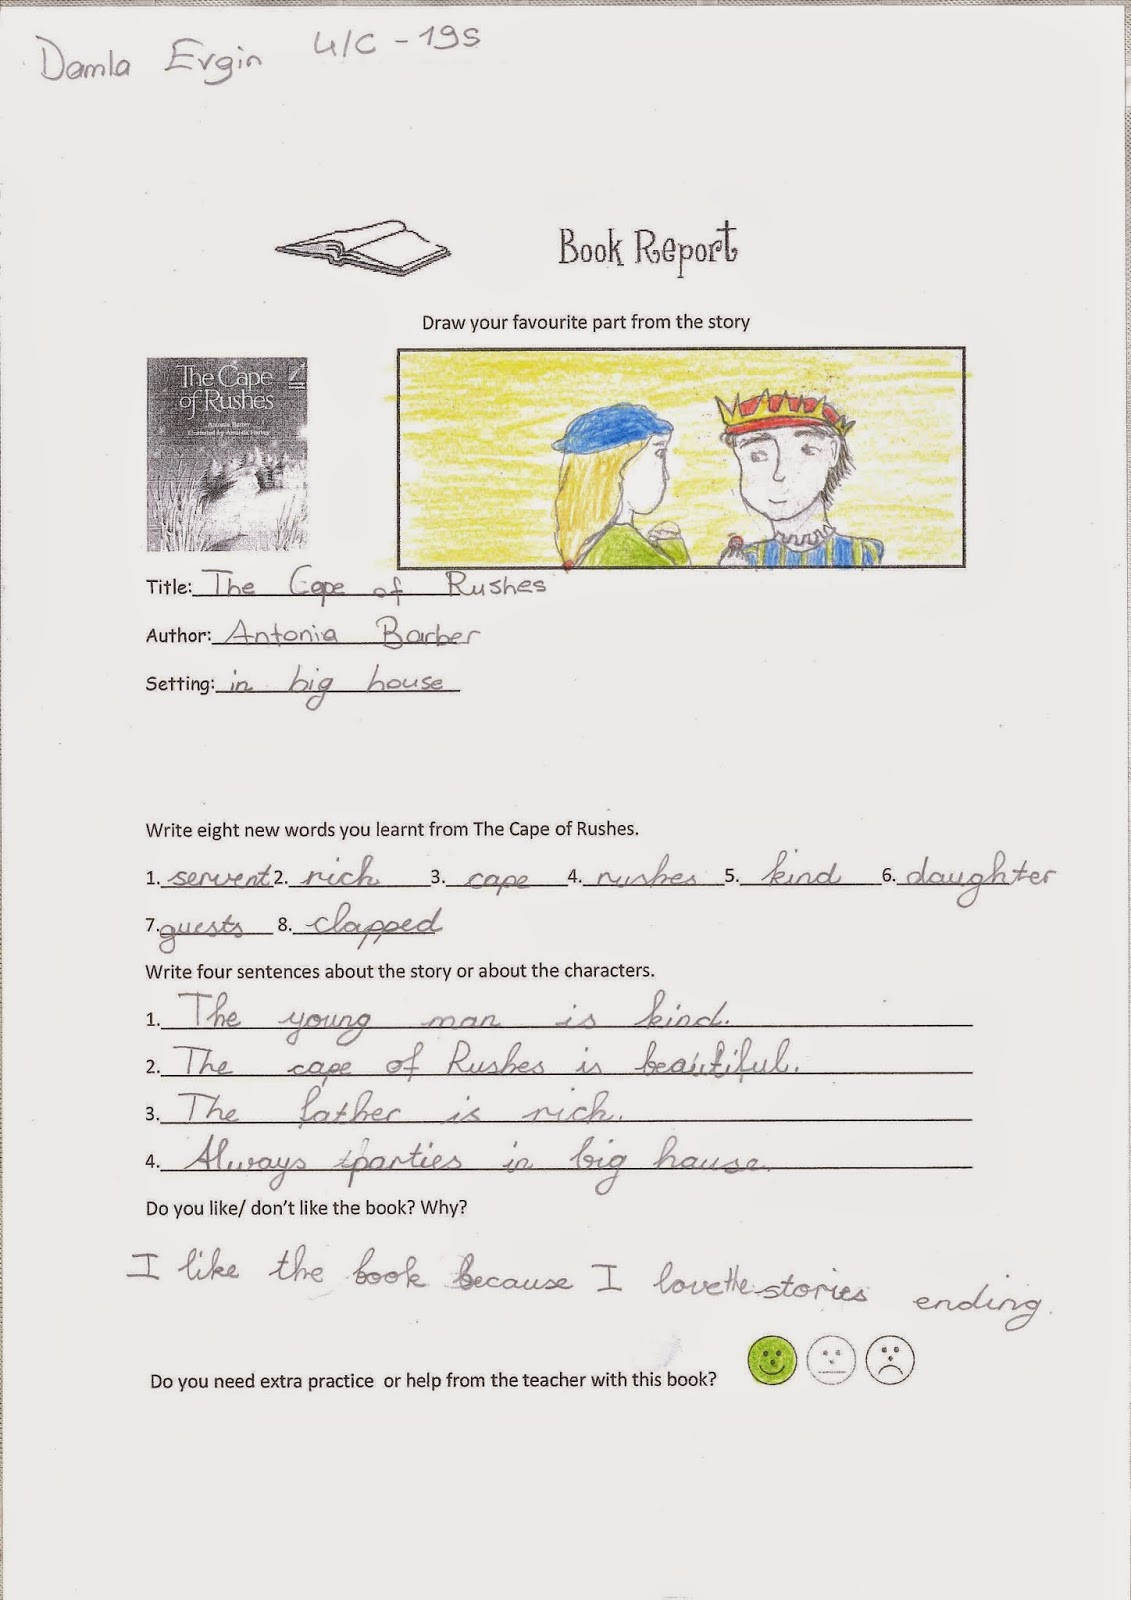 Damla Ergin 4/C - 195
Book Report
Draw your favourite part from the story
The Cape
of Rushes
Antonia Barber
Title: The Cape of Rushes
Author: Antonia Barber
Setting: in big house
Write eight new words you learnt from The Cape of Rushes.
1. servent 2. rich 3. cape 4. rushes 5. kind 6. daughter
7. guests 8. clapped
Write four sentences about the story or about the characters.
1. The young man is kind.
2. The cape of Rushes is beautiful.
3. The father is rich.
4. Always parties in big hause.
Do you like/ don't like the book? Why?
I like the book because I love the stories ending.
Do you need extra practice or help from the teacher with this book?